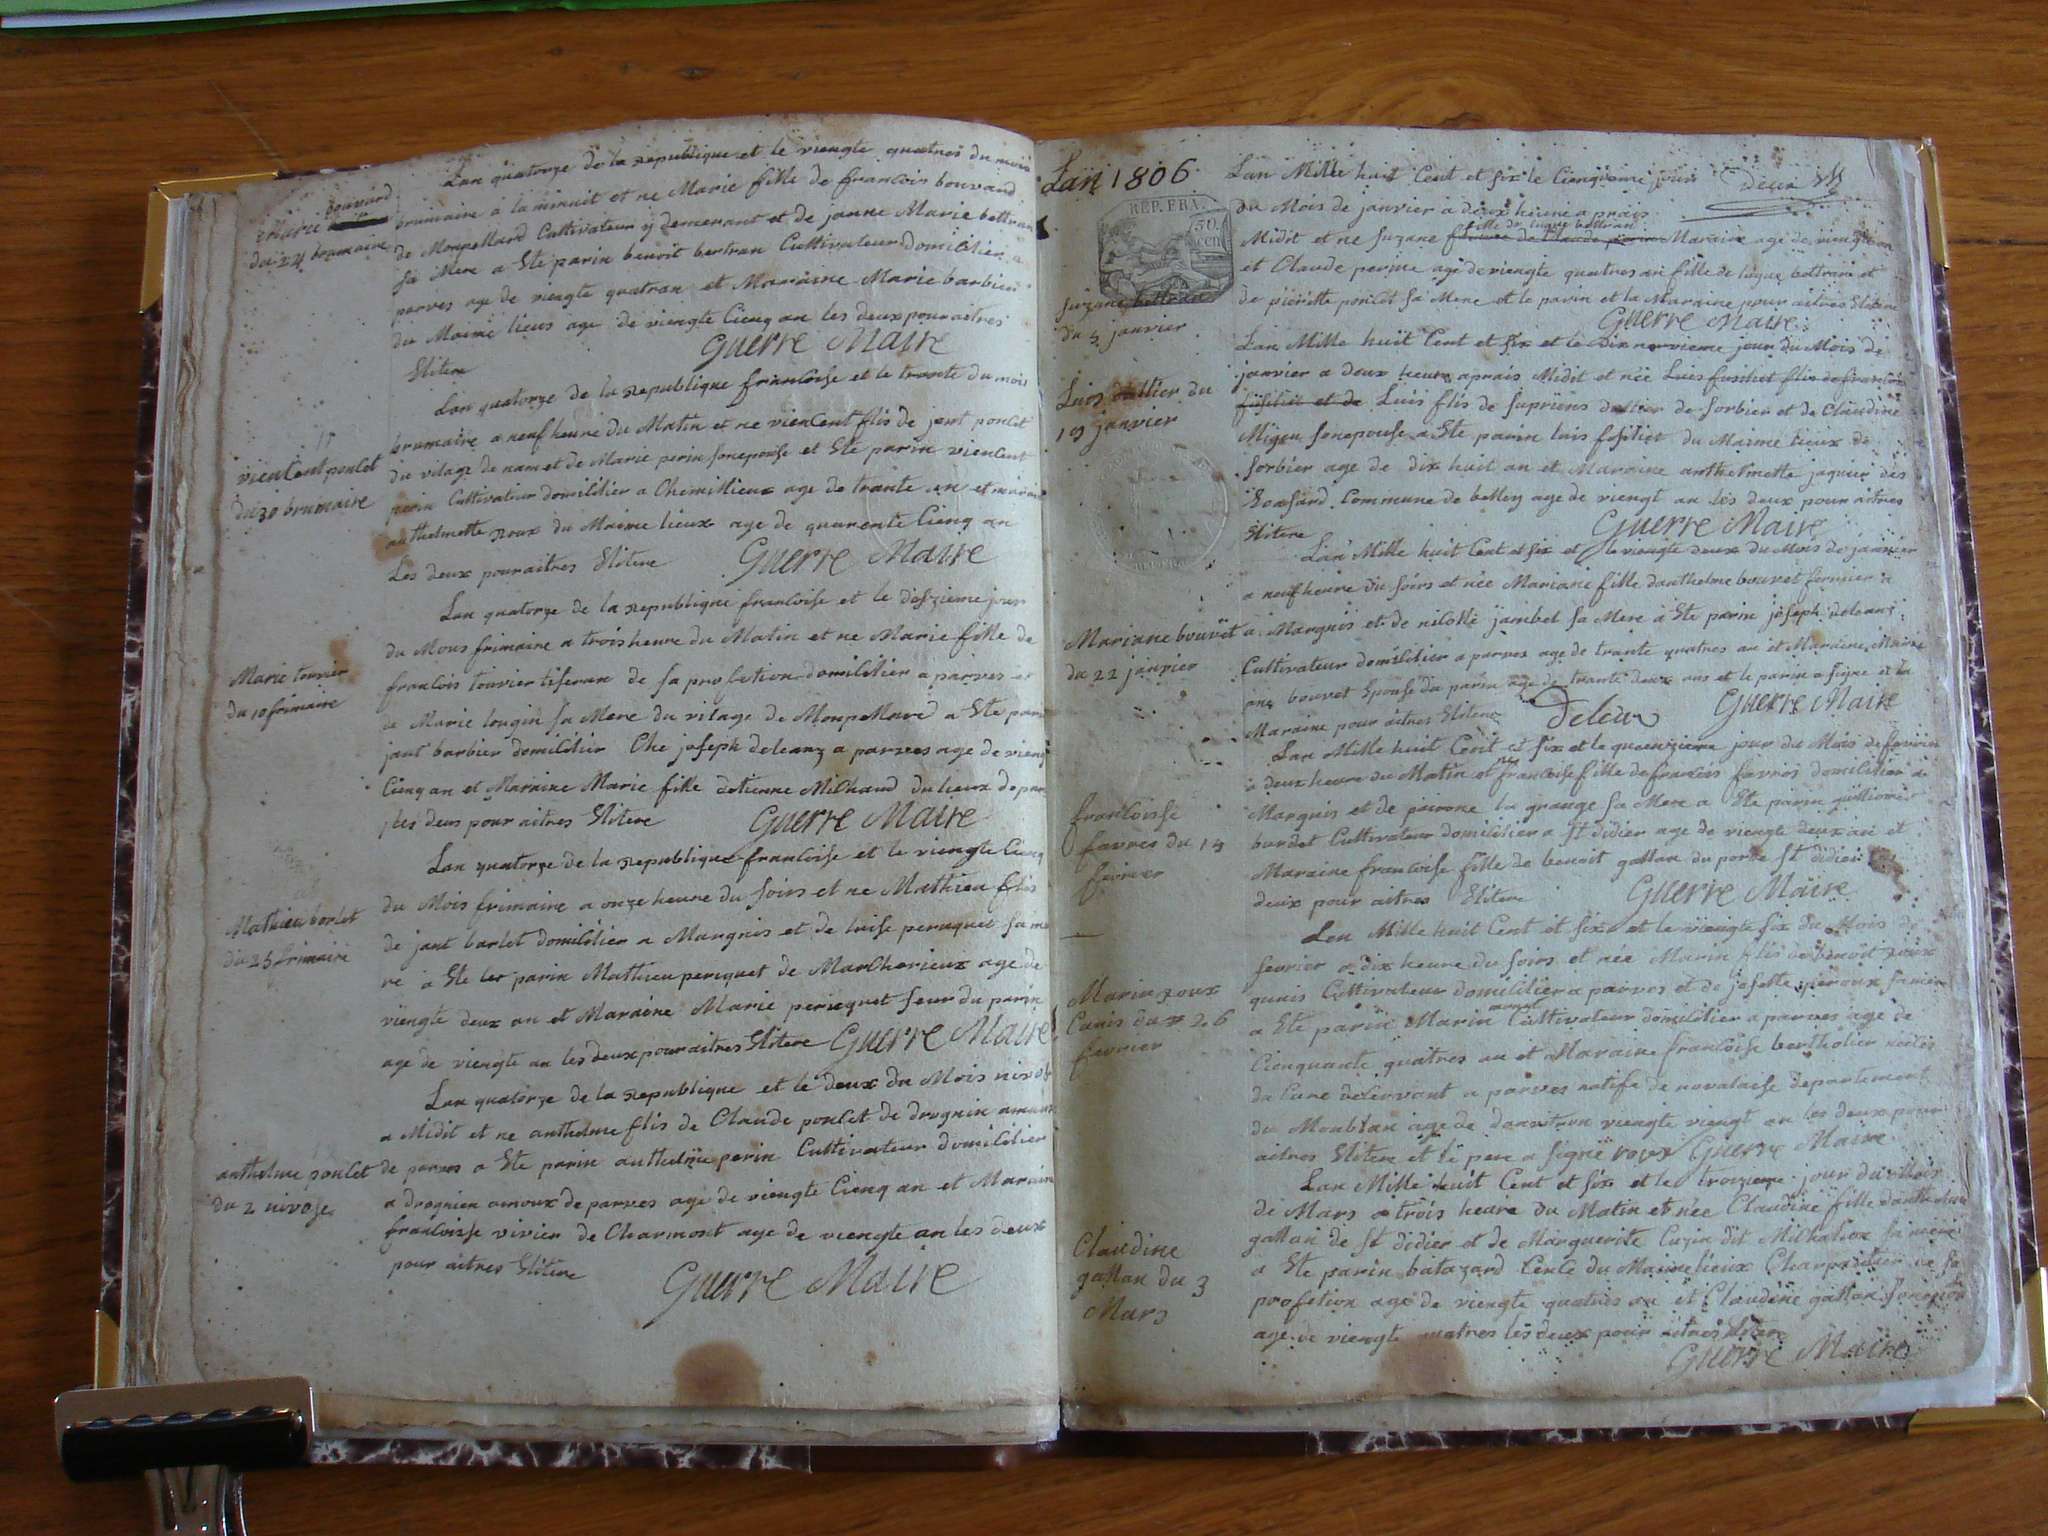 Lan quatorze de la republique et le viengte quatres du mois
bouvard
Marie
du 24 brumaire
brumaire à la minuit et ne Marie fille de francois bouvard
de Monpellard Cultivateur y demeurant et de janne Marie bettran
sa Mere a Ete parin benoit bertran Cultivateur domicilier a
parves age de viengte quatran et Maraine Marie barbier
du Maime lieus age de viengte Cienq an les deux pour aitres
Ilitere
Guerre Maire
Lan quatorze de la republique francoise et le trante du mois
brumaire a neuf heure du Matin et ne viencent flis de jent ponlet
viencent ponlet
du 30 brumaire
du vilage de nam et de Marie perin sonepouse et Ete parin viencent
perin Cultivateur domicilier a Chemillieux age de trante an et marain
anthelmette roux du Maime lieux age de quarente Cienq an
Les deux pour aitres Ilitere
Guerre Maire
Lan quatorze de la republique francoise et le deszieme jour
du Mous frimaire a trois heure du Matin et ne Marie fille de
Marie touvier
du 10 frimaire
francois touvier tiseran de sa profetion domicilier a parves et
de Marie lougin sa Mere du vilage de Monpellard a Ete par
jant barbier domicilier Che joseph deleanz a parves age de vieng
Cienq an et Maraine Marie fille detienne Milhaud du lieux de par
les deus pour aitres Ilitere
Guerre Maire
Lan quatorze de la republique francoise et le viengte Cienq
du Mois frimaire a onze heure du soirs et ne Mathieu flis
Mathieu barlet
du 25 frimaire
de jant barlet domicilier a Margnis et de luise peruquet sa me
re a Ete les parin Mathieu periquet de Marcherieux age de
viengte deux an et Maraine Marie pericquet seur du parin
age de viengte an les deux pour aitres Ilitere
Guerre Maire
Lan quatorze de la republique et le deux du Mois nivose
a Midit et ne anthelme flis de Claude ponlet de drognin amoux
anthelme ponlet
du 2 nivose
de parves a Ete parin anthelme perin Cultivateur domicilier
a drognien amoux de parves age de viengte Cienq an et Maraine
francoisse vivier de Charmont age de viengte an les deux
pour aitres Ilitere
Guerre Maire
Lan 1806
REP. FRA.
50
cent
Lan Mille huit Cent et six le Cienqieme jour
deux
du Mois de janvier a deux heure a prais
fille de lugue bettran
Midit et ne Suzane Maraine age de viengte an
et Claude perine age de viengte quatres an fille de lugue bettran et
de pierette poncet sa Mere et le parin et la Maraine pour aitres Ilitere
Suzane bettran
du 5 janvier
Guerre Maire
Lan Mille huit Cent et six et le dix novieme jour du Mois de
janvier a deux heure aprais Midit et née Luis fusiliet flis de francois
fusiliet et de Luis flis de Supriens dallier de sorbier et de Claudine
Luis dallier du
19 janvier
Migeu sonepouse a Ete parin luis fusilier du Maime lieux de
sorbier age de dix huit an et Maraine anthelmette jaquier des
Ecosard Commune de belley age de viengt an les deux pour aitres
Ilitere
Guerre Maire
Lan Mille huit Cent et six et le viengte deux du Mois de janvier
a neuf heure du soirs et née Mariane fille danthelme bouvet fermier a
Mariane bouvet
du 22 janvier
a Margnis et de nilolle jambet sa Mere à Ete parin joseph deleanz
Cultivateur domicilier a parves age de trante quatres an et Maraine Maria
ane bouvet Epouse du parin age de trante deux ans et le parin a signe et la
Maraine pour aitres Ilitere
Guerre Maire
Lan Mille huit Cent et six et le quienzieme jour du Mois de favrier
a deux heure du Matin et née francoise fille de francois favres domicilier a
francoisse
favres du 15
fevrier
Margnis et de pairone la grange sa Mere a Ete parin guilliomes
bardet Cultivateur domicilier a St didier age de viengte deux an et
Maraine francoise fille de benoit gallan du porte St didier les
deux pour aitres Ilitere
Guerre Maire
Lan Mille huit Cent et six et le viengte six du Mois de
fevrier a dix heure du soirs et née Marin flis de benoit roux
Marin roux
Cunis du 26
fevrier
qunis Cultivateur domicilier a parves et de josette peroux sa mere
a Ete parin Marin Cultivateur domicilier a parves age de
Cienquante quatres an et Maraine francoise bertholier
du Cure deservant a parves natife de novalaise departement
du Monblan age de viengte viengt an les deux pour
aitres Ilitere et le pere a signé roux
Guerre Maire
Lan Mille huit Cent et six et le troizieme jour du Mois
de Mars a trois heure du Matin et née Claudine fille danthelme
Claudine
gallan du 3
Mars
gallan de St didier et de Marguerite Cuzin dit Milhalion sa mere
a Ete parin batazard Cence du Maime lieux Charpantier de sa
profetion age de viengte quatres an et Claudine gallan
age de viengte quatres les deux pour aitres Ilitere
Guerre Maire